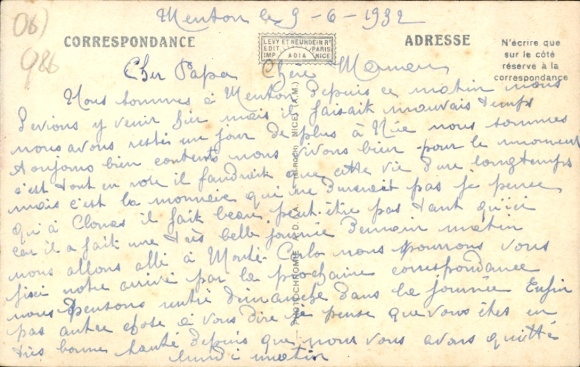 Menton le 9-6-1932
(06)
986
CORRESPONDANCE
LEVY ET NEURDEIN Rs
EDIT. PARIS
IMP. ADIA NICE
ADRESSE
N'écrire que
sur le côté
réservé à la
correspondance
Cher Papa Chère Maman
Nous sommes à Menton depuis ce matin nous
devions y venir hier mais il faisait mauvais temps
nous avons resté un jour de plus à Nice nous sommes
toujours bien contents nous vivons bien pour le moment
c'est tout en rose il faudrait que cette vie dure longtemps
mais c'est la monnaie qui ne durerait pas je pense
qu'à il fait beau peut-être pas tant qu'ici
car il a fait une très belle journée Demain matin
nous allons allé à Monté-Carlo nous pourrons vous
notre arrivé par la prochaine correspondance
nous pensons rentré dimanche dans la journée Enfin
pas autre chose à vous dire je pense que vous êtes en
très bonne santé depuis que nous vous avons quitté
lundi matin
PHOTOCHROMIE
NICE (A.M.)